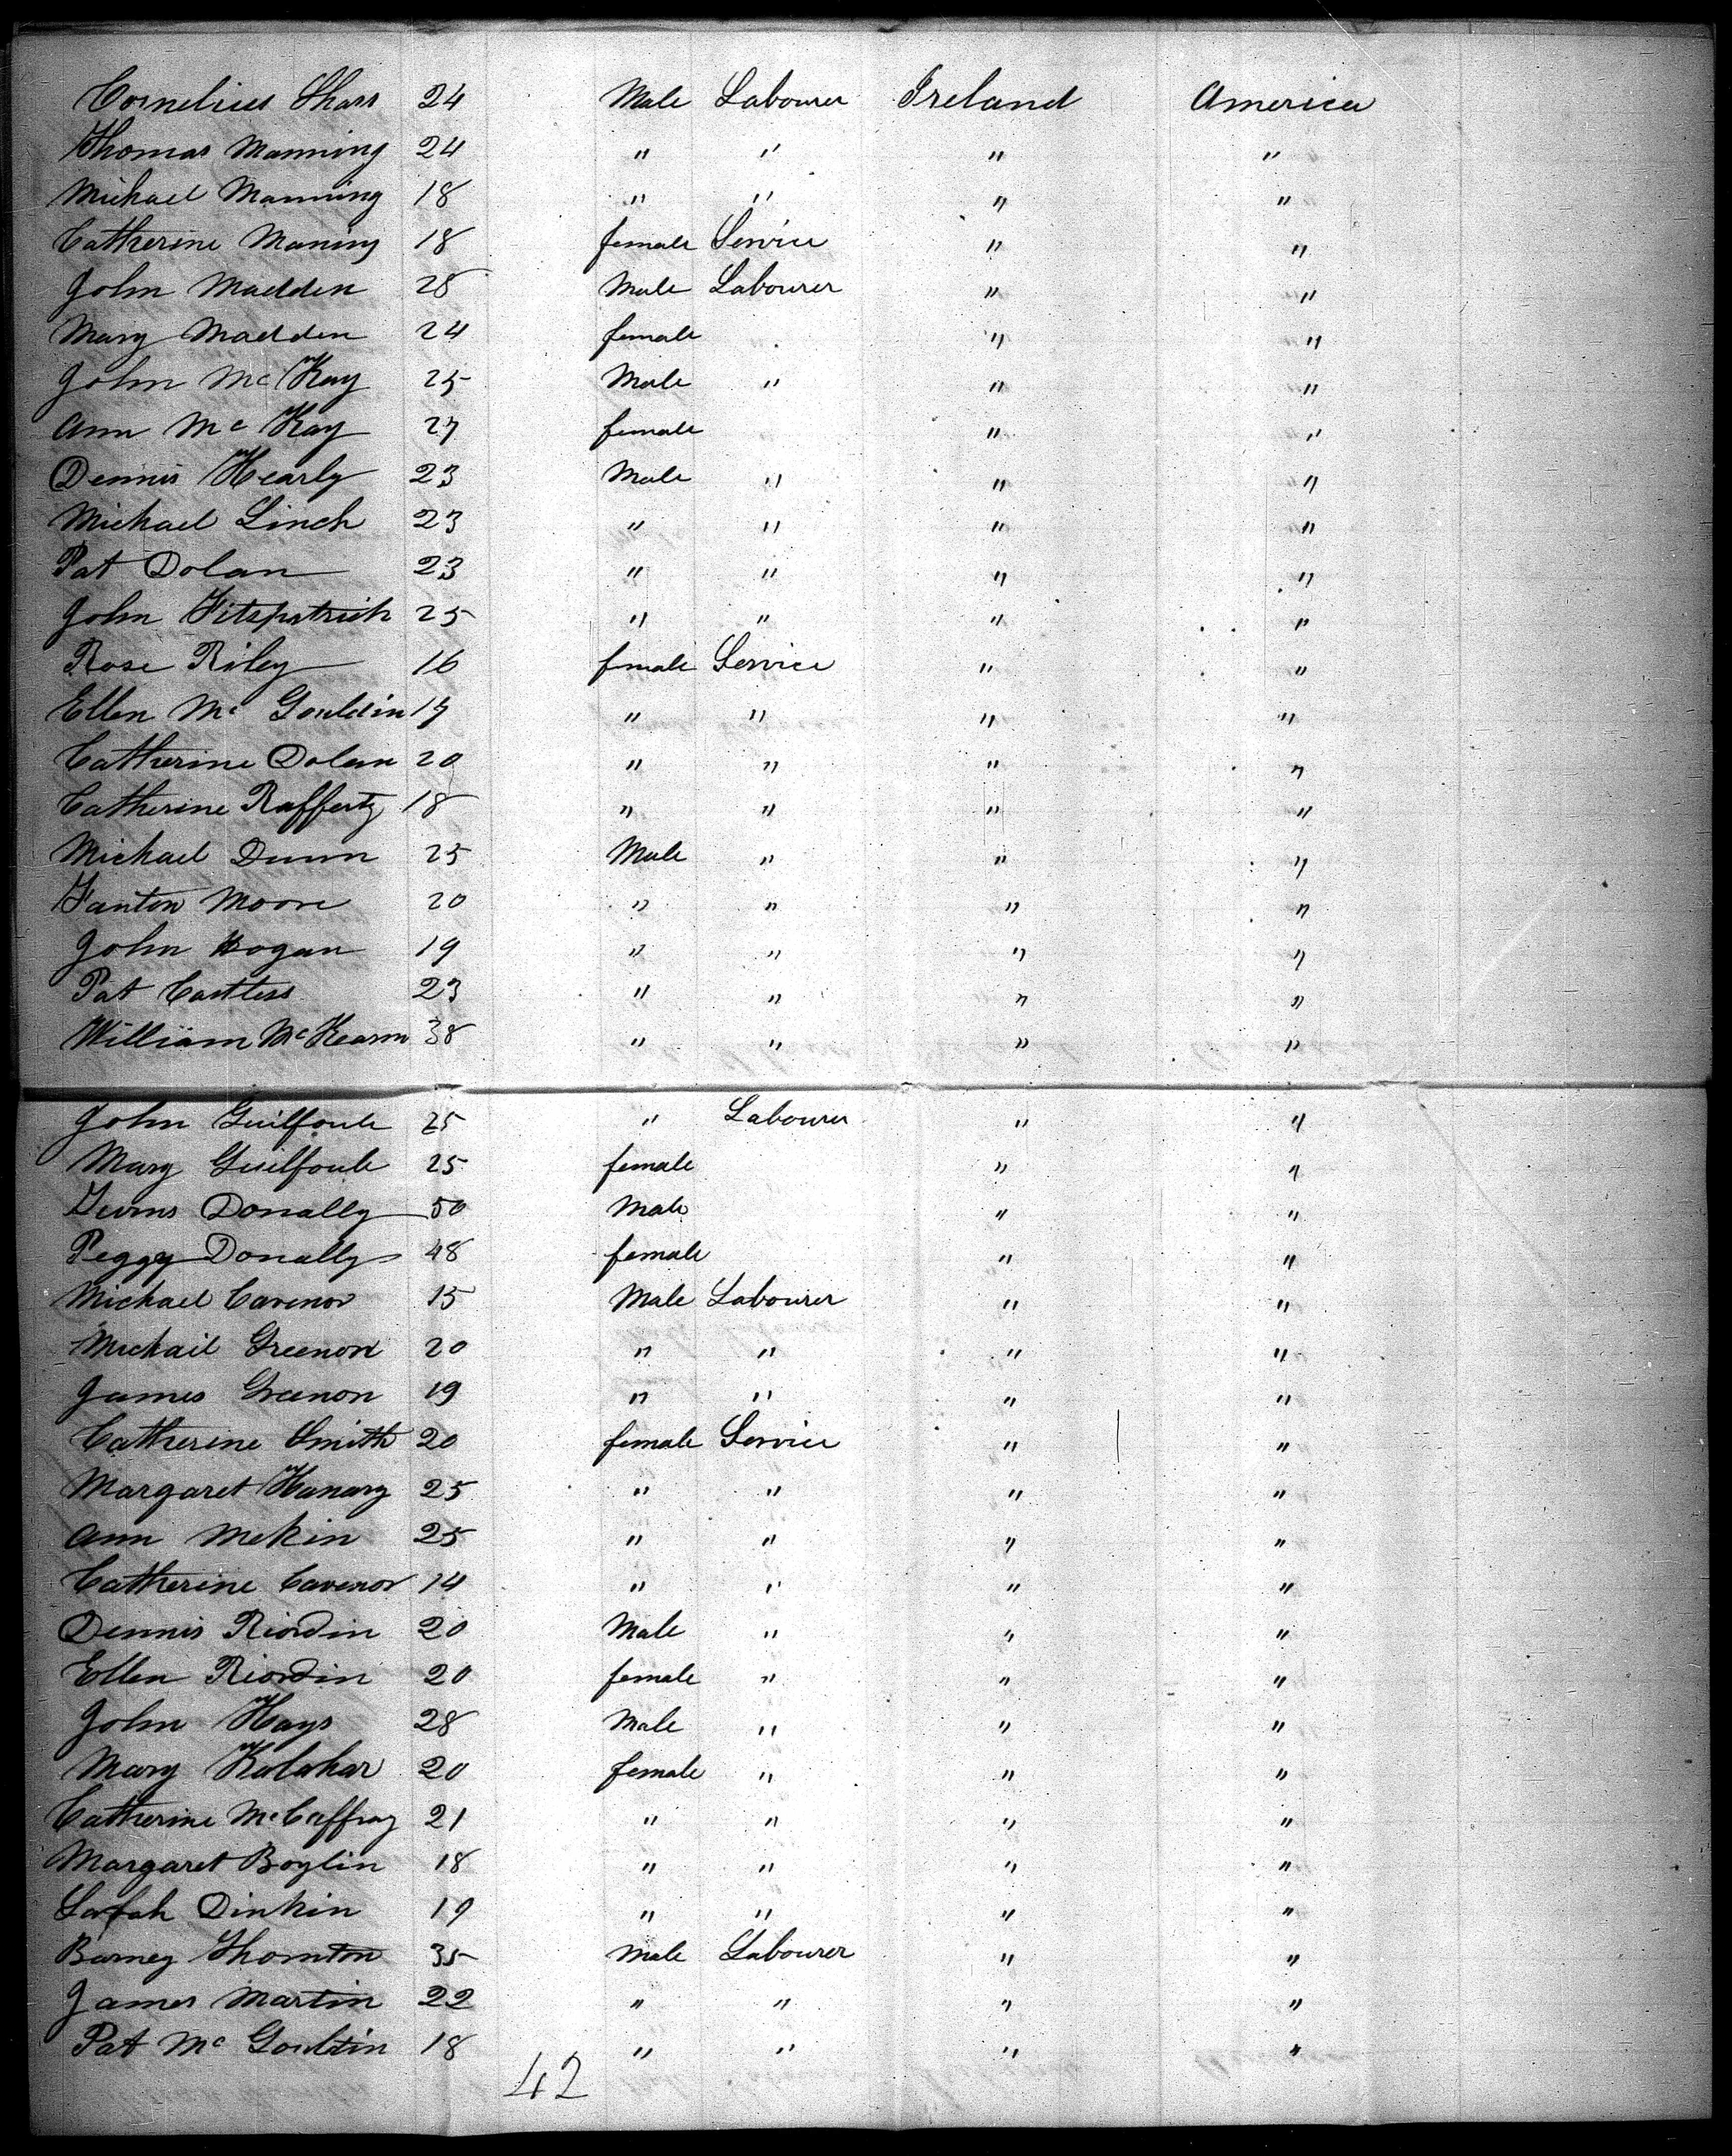 Cornelius Shass 24 Male Labourer Ireland America
Thomas Manning 24 " " " "
Michael Manning 18 " " " "
Catherine Maning 18 female Service " "
John Madden 28 Male Labourer " "
Mary Madden 24 female " "
John Mc Kay 25 Male " " "
Ann Mc Kay 27 female " "
Dennis Hearly 23 Male " " "
Michael Linch 23 " " " "
Pat Dolan 23 " " " "
John Fitspatrick 25 " " " "
Rose Riley 16 female Service " "
Ellen Mc Gouldin 17 " " " "
Catherine Dolan 20 " " " "
Catherine Rafferty 18 " " " "
Michael Dunn 25 Male " " "
Fanton Moore 20 " " " "
John Hogan 19 " " " "
Pat 23 " " " "
William McKearn 38 " " " "
John Guilfoule 25 " Labourer " "
Mary Guilfoule 25 female " "
Donally 50 Male " "
Peggy Donally 48 female " "
Michael Cavenor 15 Male Labourer " "
Michail Greenon 20 " " " "
James Greenon 19 " " " "
Catherine Smith 20 female Service " "
Margaret Hanary 25 " " " "
Ann Mekin 25 " " " "
Catherine Cavenor 14 " " " "
Dennis Riordin 20 Male " " "
Ellen Riordin 20 female " " "
John Hays 28 Male " " "
Mary Kalahar 20 female " " "
Catherine McCaffray 21 " " " "
Margaret Boylin 18 " " " "
Sarah Dinkin 19 " " " "
Barney Thornton 35 Male Labourer " "
James Martin 22 " " " "
Pat Mc Gouldin 18 " " " "
42